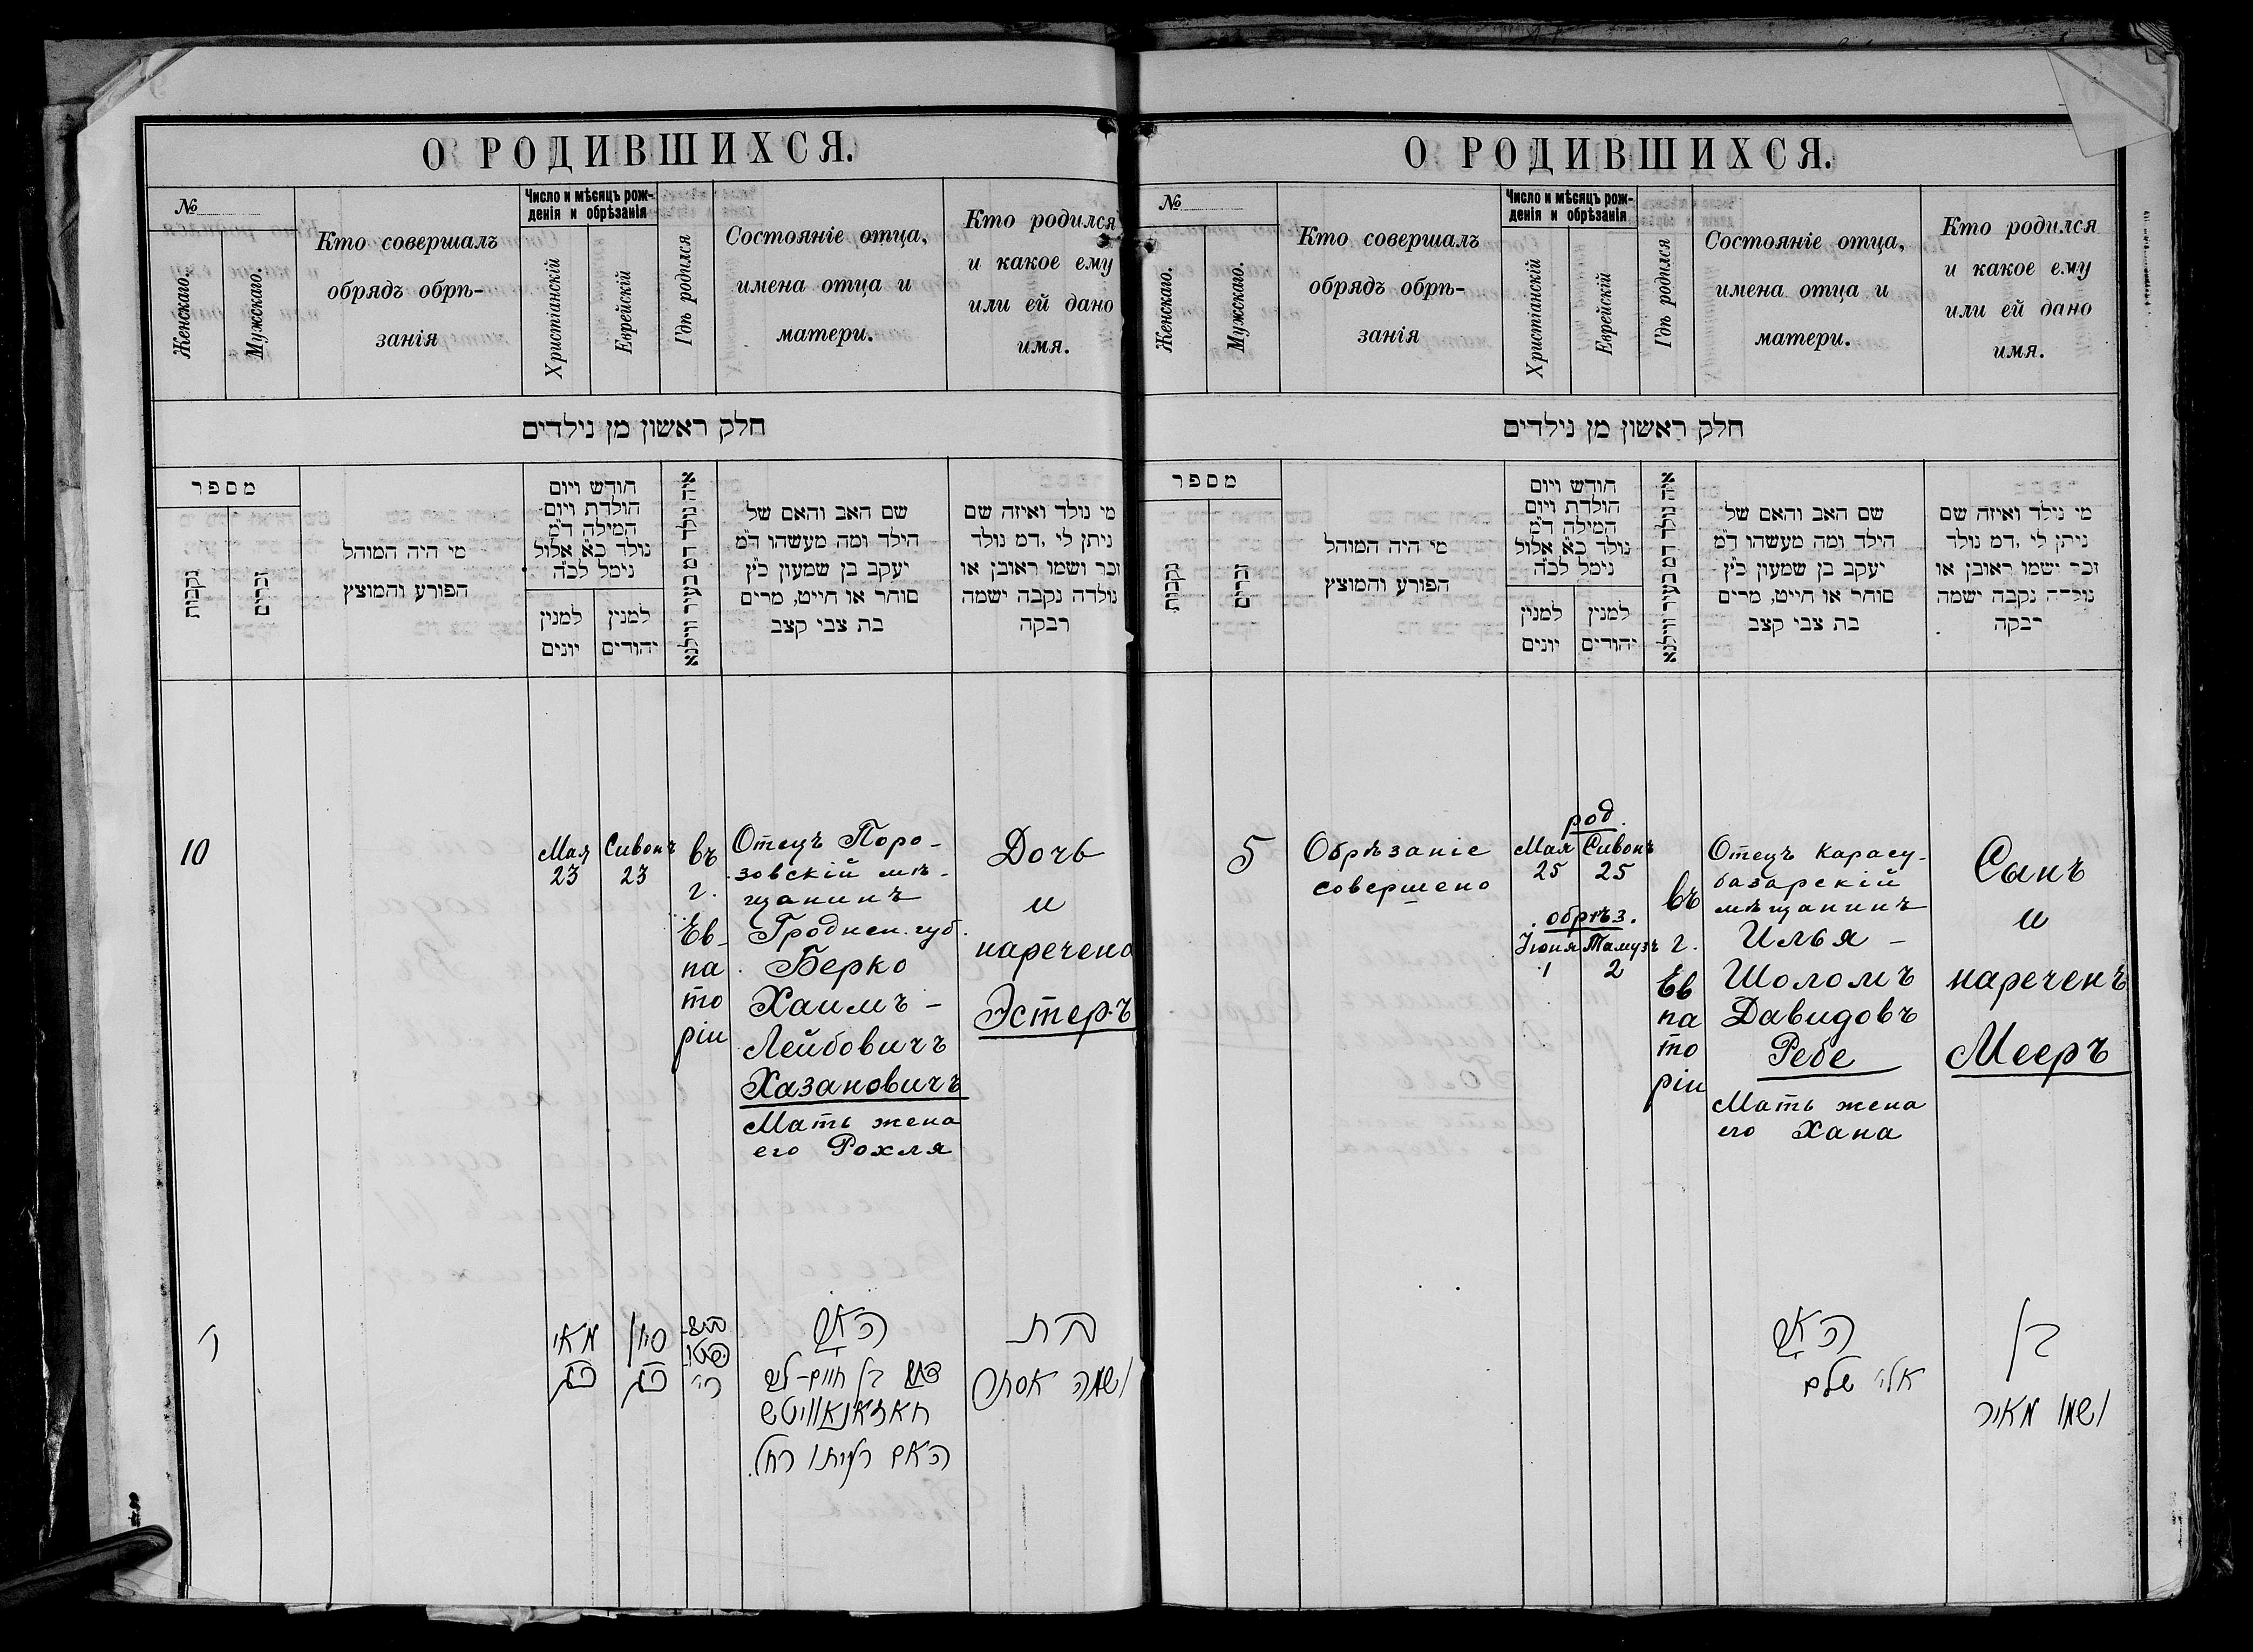 О РОДИВШИХСЯ.
№
Женскаго.
Мужскаго.
Кто совершалъ
обрядъ обрѣ-
занія
Число и мѣсяцъ рож-
денія и обрѣзанія
Христіанскій
Еврейскій
Гдѣ родился
Состояніе отца,
имена отца и
матери.
Кто родился
и какое ему
или ей дано
имя.
חלק ראשון מן נילדים
מספר
נקבות
זכרים
מי היה המוהל
הפורע והמוצץ
חודש ויום
הולדת ויום
המילה ד״מ
נולד כ״א אלול
נימל לכ״ה
למנין
יונים
למנין
יהודים
איה נולד דמ בעיר ווילנא
שם האב והאם של
הילד ומה מעשהו ד״מ
יעקב בן שמעון כ״ץ
סוחר או חייט, מרים
בת צבי קצב
מי נולד ואיזה שם
ניתן לי ,דמ נולד
זכר ושמו ראובן או
נולדה נקבה ישמה
רבקה
10
Мая
23
Сивонъ
23
въ
г.
Ев-
па
то
ріи
Отецъ Поро-
зовскій мѣ-
щанинъ
Гроднен. губ.
Берко
Хаимъ-
Лейбовичъ
Хазановичъ
Мать жена
его Рохля
Дочь
и
наречена
Эстеръ
י
מאי
כג
סיון
כג
האב
בן חיים-ליב
חאזאנאוויטש
האם רחל.
בת
ושמה אסתר
О РОДИВШИХСЯ.
№
Женскаго.
Мужскаго.
Кто совершалъ
обрядъ обрѣ-
занія
Число и мѣсяцъ рож-
денія и обрѣзанія
Христіанскій
Еврейскій
Гдѣ родился
Состояніе отца,
имена отца и
матери.
Кто родился
и какое ему
или ей дано
имя.
חלק ראשון מן נילדים
מספר
נקבות
זכרים
מי היה המוהל
הפורע והמוצץ
חודש ויום
הולדת ויום
המילה ד״מ
נולד כ״א אלול
נימל לכ״ה
למנין
יונים
למנין
יהודים
איה נולד דמ בעיר ווילנא
שם האב והאם של
הילד ומה מעשהו ד״מ
יעקב בן שמעון כ״ץ
סוחר או חייט, מרים
בת צבי קצב
מי נילד ואיזה שם
ניתן לי ,דמ נולד
זכר ישמו ראובן או
נולדה נקבה ישמה
רבקה
5
Обрѣзаніе
совершено
род.
Мая
25
Сивонъ
25
обрѣз.
Іюня
1
Тамузъ
2
въ
г.
Ев
па
то
ріи
Отецъ Карасу-
базарскій
мѣщанинъ
Илья-
Шоломъ
Давидовъ
Ребе
Мать жена
его Хана
Сынъ
и
нареченъ
Мееръ
האב
אלי שלם
בן
ושמו מאיר